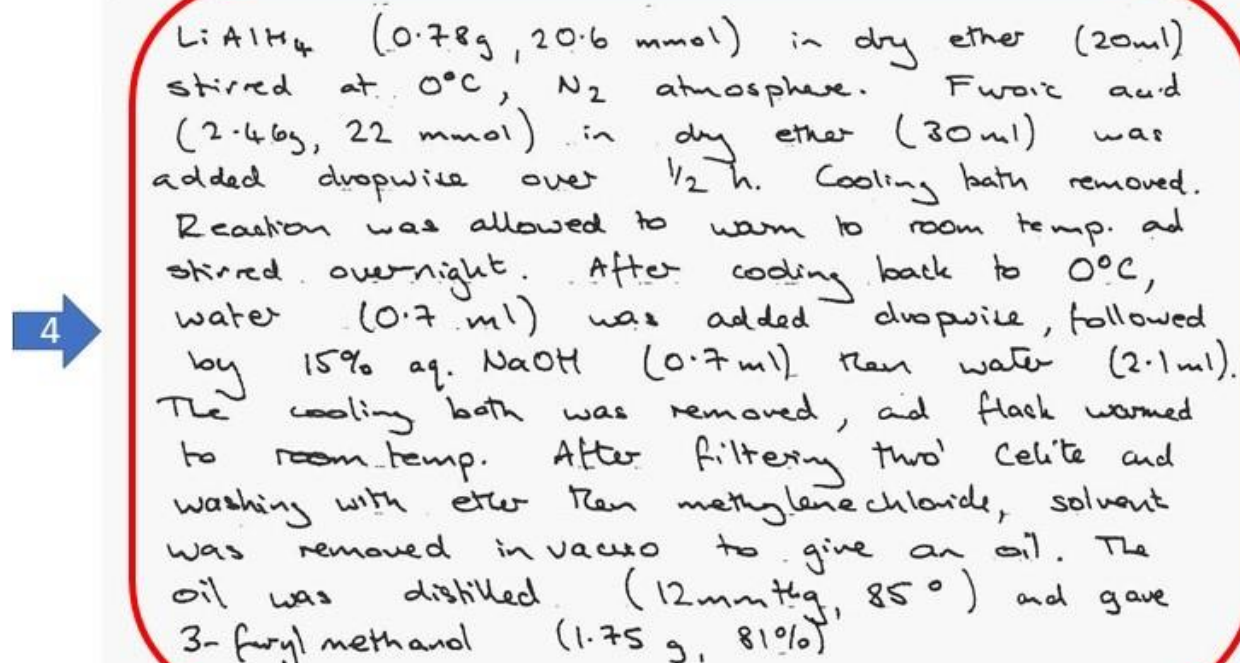 LiAlH4 (0.78g, 20.6 mmol) in dry ether (20ml)
stirred at 0°C, N2 atmosphere. Furoic acid
(2.46g, 22 mmol) in dry ether (30ml) was
added dropwise over 1/2 h. Cooling bath removed.
Reaction was allowed to warm to room temp. ad
stirred overnight. After cooling back to 0°C,
4
water (0.7 ml) was added dropwise, followed
by 15% aq. NaOH (0.7ml) then water (2.1ml).
The cooling bath was removed, and flask warmed
to room temp. After filtering thro' Celite and
washing with ether then methylene chloride, solvent
was removed in vacuo to give an oil. The
oil was distilled (12mmHg, 85°) and gave
3-furyl methanol (1.75 g, 81%)